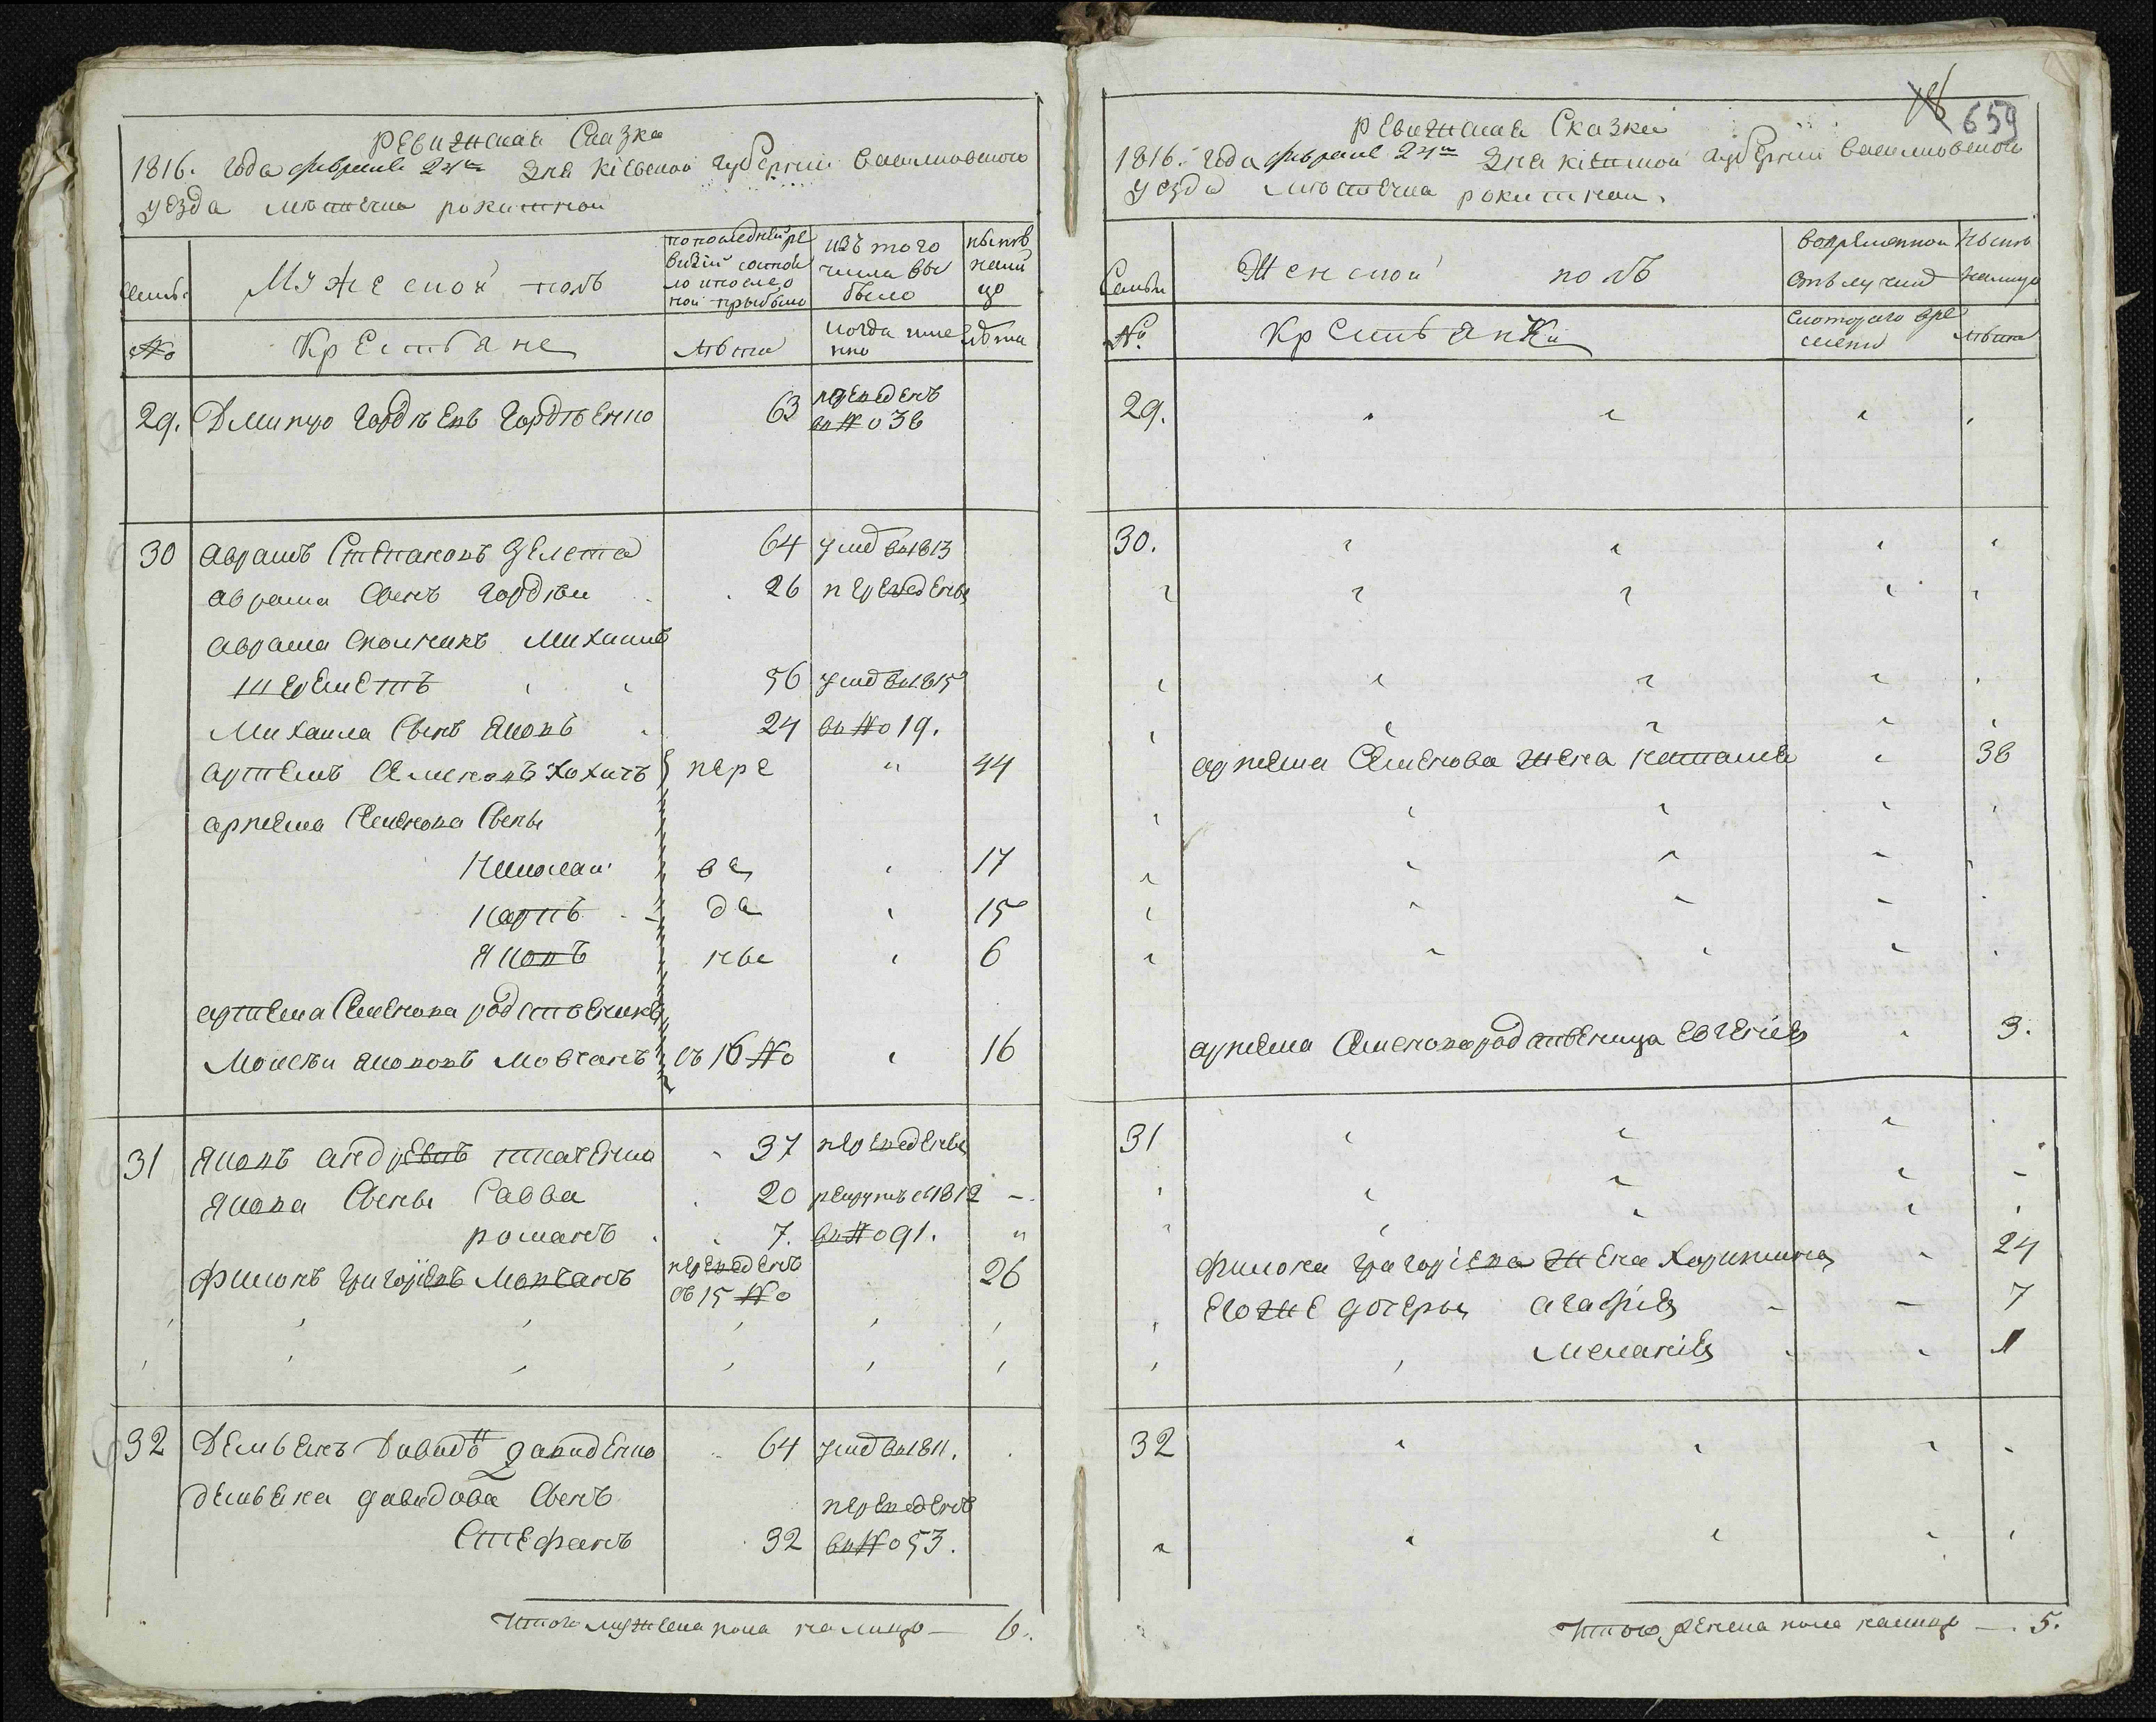 Ревижская Сказка
1816. года февраля 24го дня Кіевской губерніи Васильковского
уезда местечка рокитной
Семьи
Мужеской полъ
по последней ре
визіи состоя
ло и после о
ной прыбыло
изъ того
числа вы
было
ныне
нали
цо
№
Крестьяне
лета
когда име
нно
лета
29. Дмитро Гордеевъ Гордеенко 63 переведенъ
в №о 38
30 Аврамъ Степановъ Зелета 64 умер в 1813
Аврама Сынъ Гордей 26 переведены
Аврама Михаилъ
Шереметъ 56 умер в 1815
Михаила Сынъ Яковъ 24 в №о 19.
Артемъ Семеновъ Кохичъ пере " 44
Артема Семенова Сыны
Николай ве 17
Карпъ де 15
Яковъ ны 6
Артема Семенова родственикъ
Моисей Яковов Мовчанъ съ 16 №о 16
31 Яковъ Андреевъ Ткаченко 37 переведены
Якова Сыны Савва 20 рекрутъ в 1812 -
романъ 7. в №о 91. "
Филонъ Григориевъ Мовчанъ переведенъ
съ 15 №о 26
32 Демьянъ Давидовъ Давиденко 64 умер в 1811.
Демьяна Давидова Сынъ переведенъ
Стефанъ 32 в №о 53.
Итого мужеска пола налицо — 6.
18 659
Ревижская Сказка
1816. года февраля 24го дня Кіевской губерніи Васильковского
уезда местечка рокитной.
Семьи
Женской полъ
во временной
отлучки
ныне
налицо
№
Крестьянки
с которого вре
мени
лета
29.
30.
Артема Семенова жена Наталия 38
Артема Семенова родственица Евгения 3.
31
Филона Григориева жена 24
его же дочеры Агафия 7
Мелания 1
32
Итого женска пола налицо — 5.